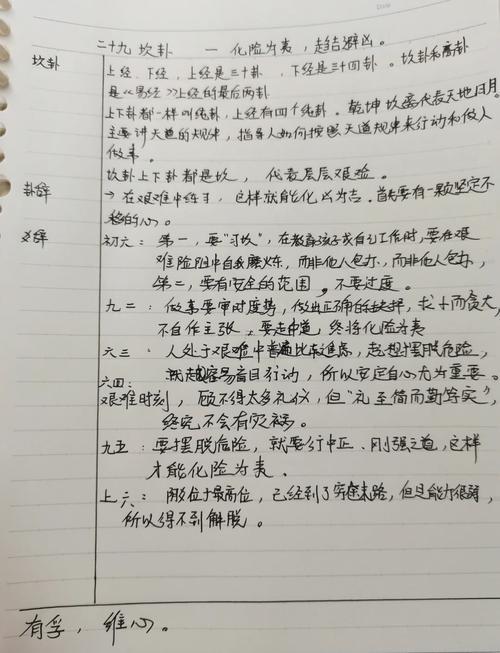 二十九 坎卦 — 化险为夷，趋吉避凶。
坎卦
上经、下经，上经是三十卦，下经是三十四卦。坎卦和离卦
是《易经》上经的最后两卦
上下卦都一样叫纯卦，上经有四个纯卦。乾坤坎离代表天地日月
主要讲天道的规律，指导人如何按照天道规律来行动和做人
做事。
坎卦上下卦都是坎，代表层层艰险。
卦辞
→在艰难中练习，这样就能化凶为吉。首先要有一颗坚定不
移的心。
爻辞
初六：第一，要"习坎"，在教育孩子或自己工作时，要在艰
难险阻中自我磨炼，而非他人包办，而非他人包办，
第二，要有安全的范围，不要过度。
九二：做事要审时度势，做出正确的抉择，求小而贪大，
不自作主张，要走中道，终将化险为夷
六三：人处于艰难中普遍比较焦虑，越想摆脱危险，
就越容易盲目行动，所以安定自心尤为重要。
六四：
艰难时刻，顾不得太多礼仪，但"礼至简而勤等实"，
终究不会有灾祸。
九五：要摆脱危险，就要行中正、刚强之道，这样
才能化险为夷。
上六：阴位于最高位，已经到了穷途末路，但是能力很弱，
所以得不到解脱。
有孚，维心。